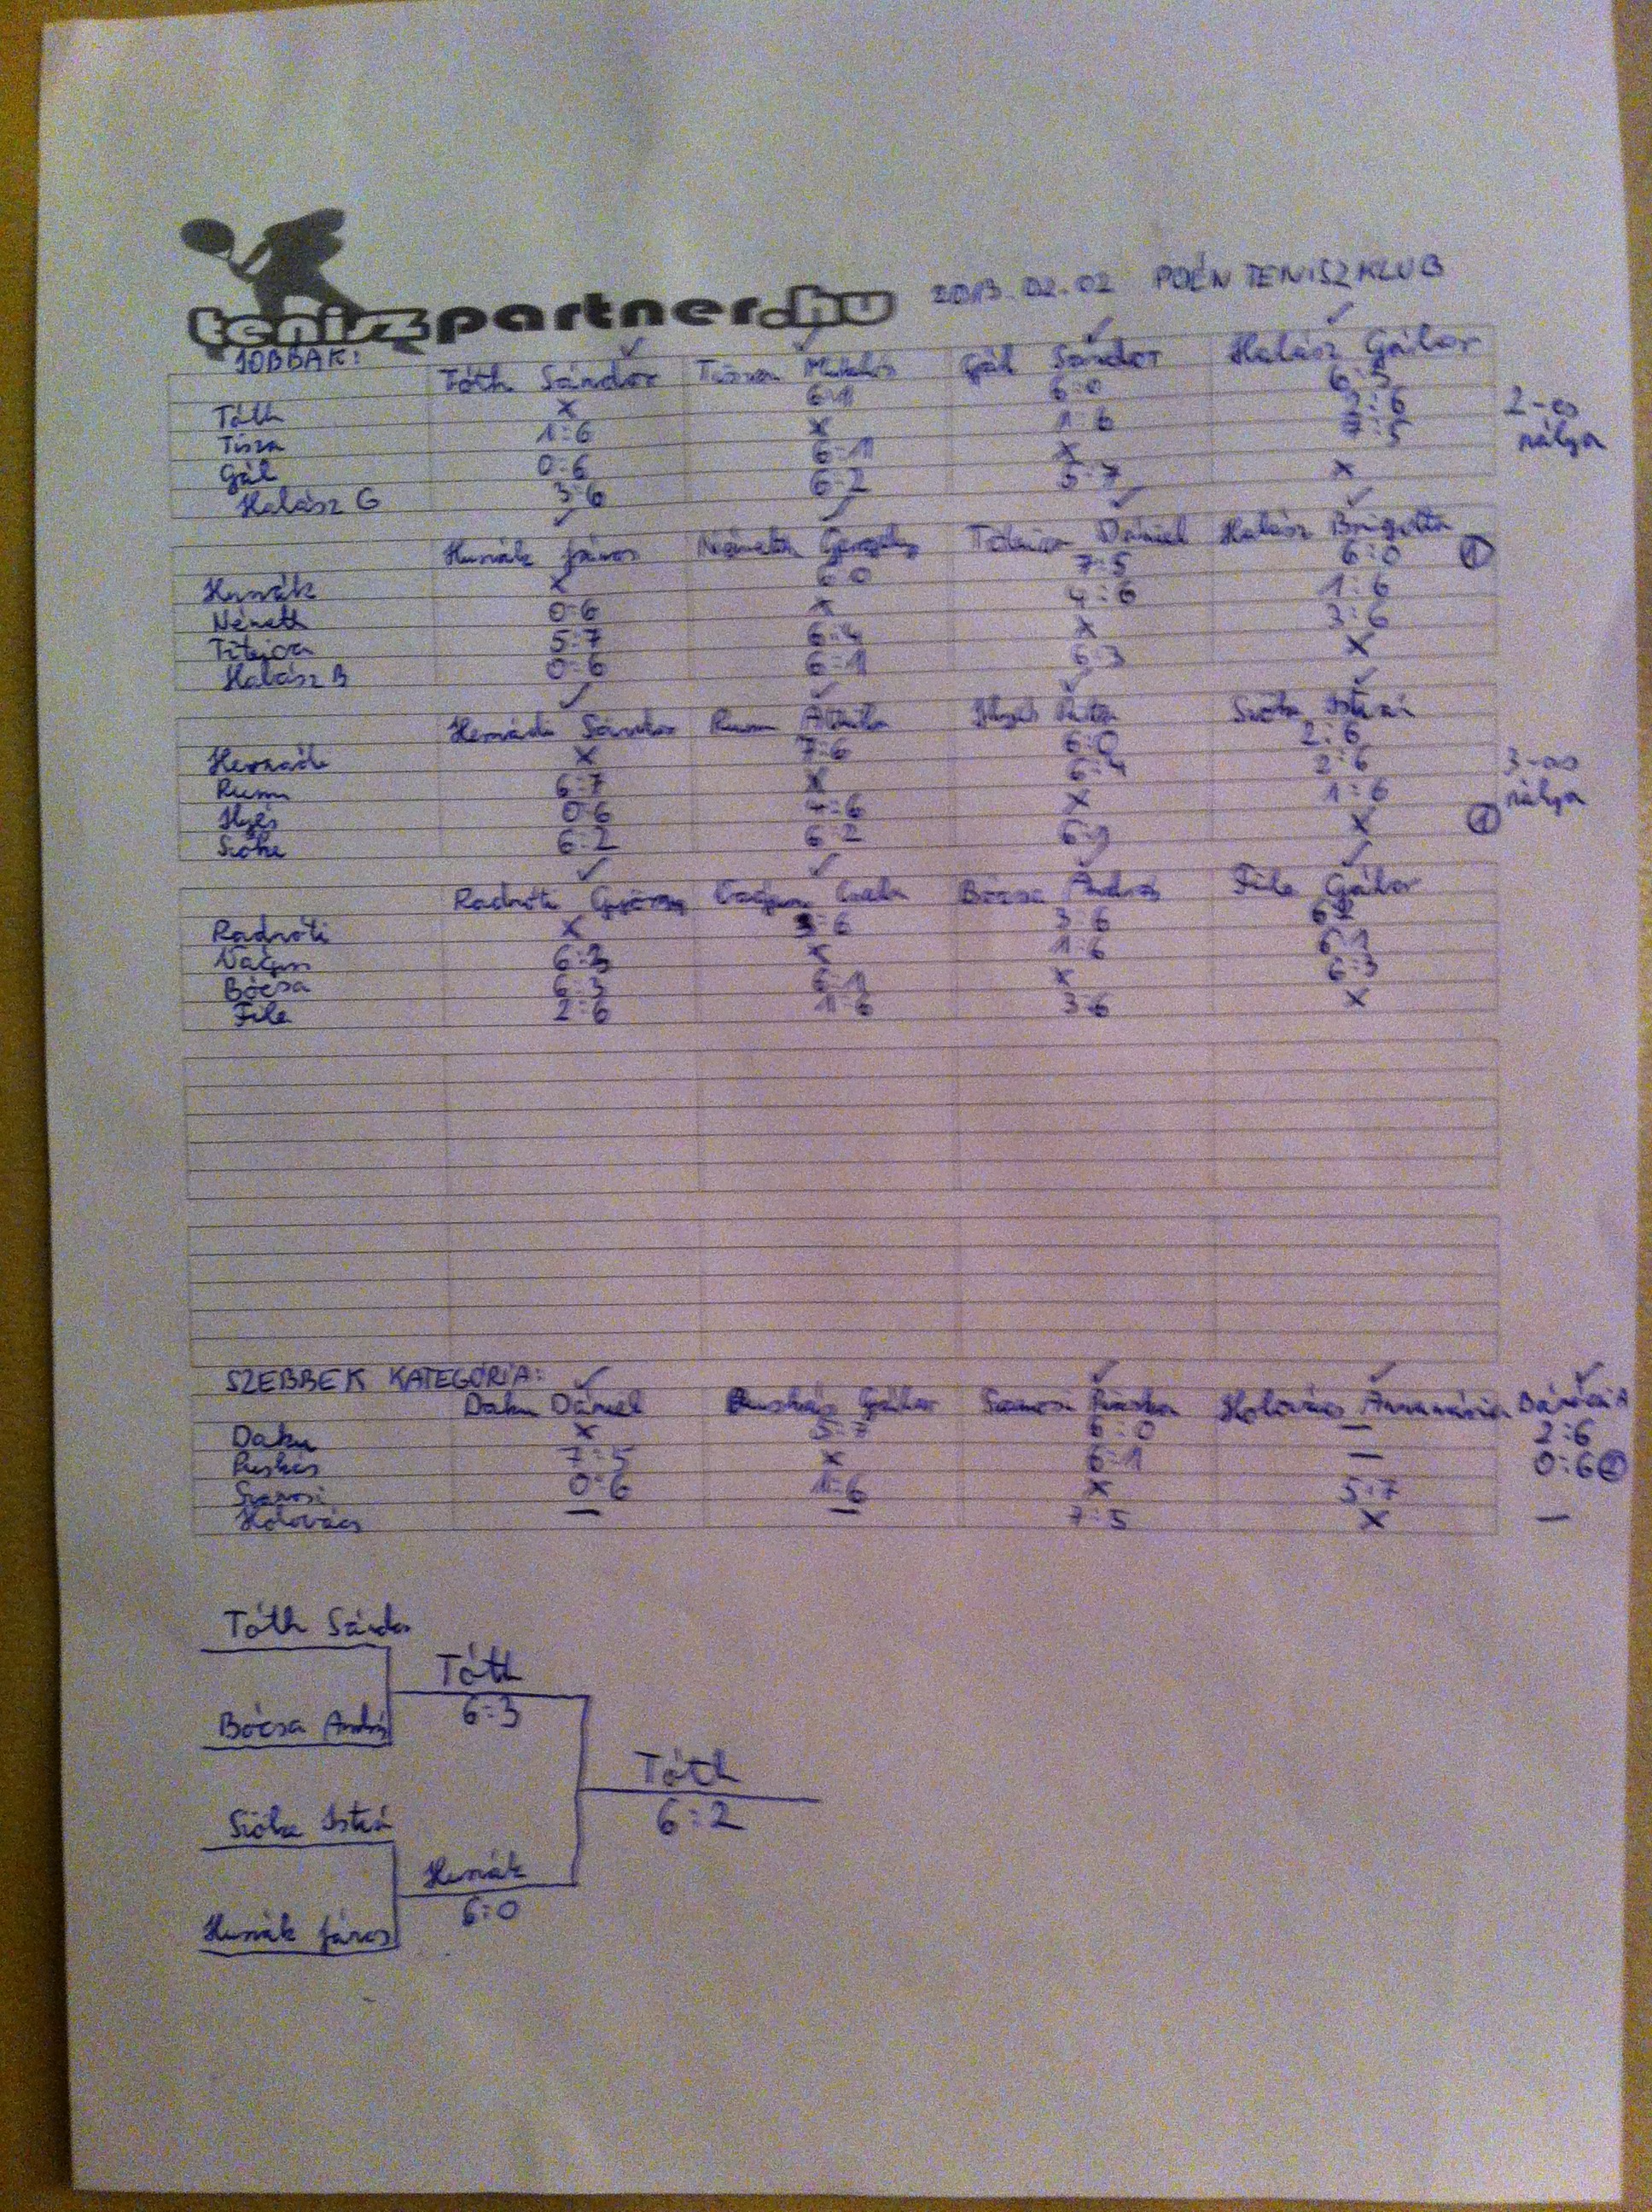 teniszpartner.hu 2013.02.02 POÉN TENISZKLUB
JOBBAK: Tóth Sándor Tisza Miklós Gál Sándor Halász Gábor
Tóth x 6:1 6:0 6:3
Tisza 1:6 x 1:6 2:6
Gál 0:6 6:1 x 7:5
Halász G 3:6 6:2 5:7 x
2-es
pálya
Husák János Németh Gergely Dániel Halász Brigitta
Husák x 6:0 7:5 6:0 1
Németh 0:6 x 4:6 1:6
5:7 6:4 x 3:6
Halász B 0:6 6:1 6:3 x
Hernádi Sándor Rumm Attila Illyés Sióka István
Hernádi x 7:6 6:0 2:6
Rumm 6:7 x 6:4 2:6
Illyés 0:6 4:6 x 1:6
Sióka 6:2 6:2 6:1 x 1
3-as
pálya
Radnóti György Csaba Bócsa András File Gábor
Radnóti x 3:6 3:6 6:2
6:3 x 1:6 6:1
Bócsa 6:3 6:1 x 6:3
File 2:6 1:6 3:6 x
SZEBBEK KATEGÓRIA:
Daku Dániel Puskás Gábor Szamosi Piroska Holovács Annamária
Daku x 5:7 6:0 — 2:6
Puskás 7:5 x 6:1 — 0:6
Szamosi 0:6 1:6 x 5:7
Holovács — — 7:5 x —
Tóth Sándor
Tóth
6:3
Bócsa András
Tóth
6:2
Sióka István
Husák
6:0
Husák János